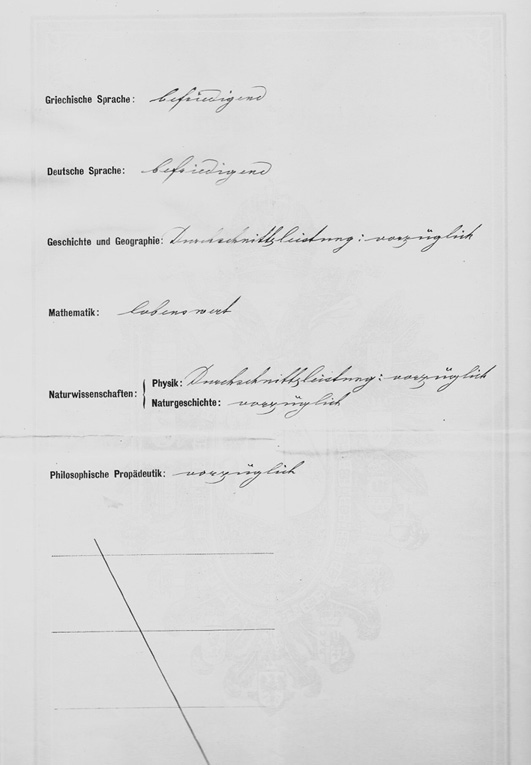 Griechische Sprache: befriedigend
Deutsche Sprache: befriedigend
Geschichte und Geographie: Durchschnittsleistung: vorzüglich
Mathematik: lobenswert
Naturwissenschaften: Physik: Durchschnittsleistung: vorzüglich
Naturgeschichte: vorzüglich
Philosophische Propädeutik: vorzüglich